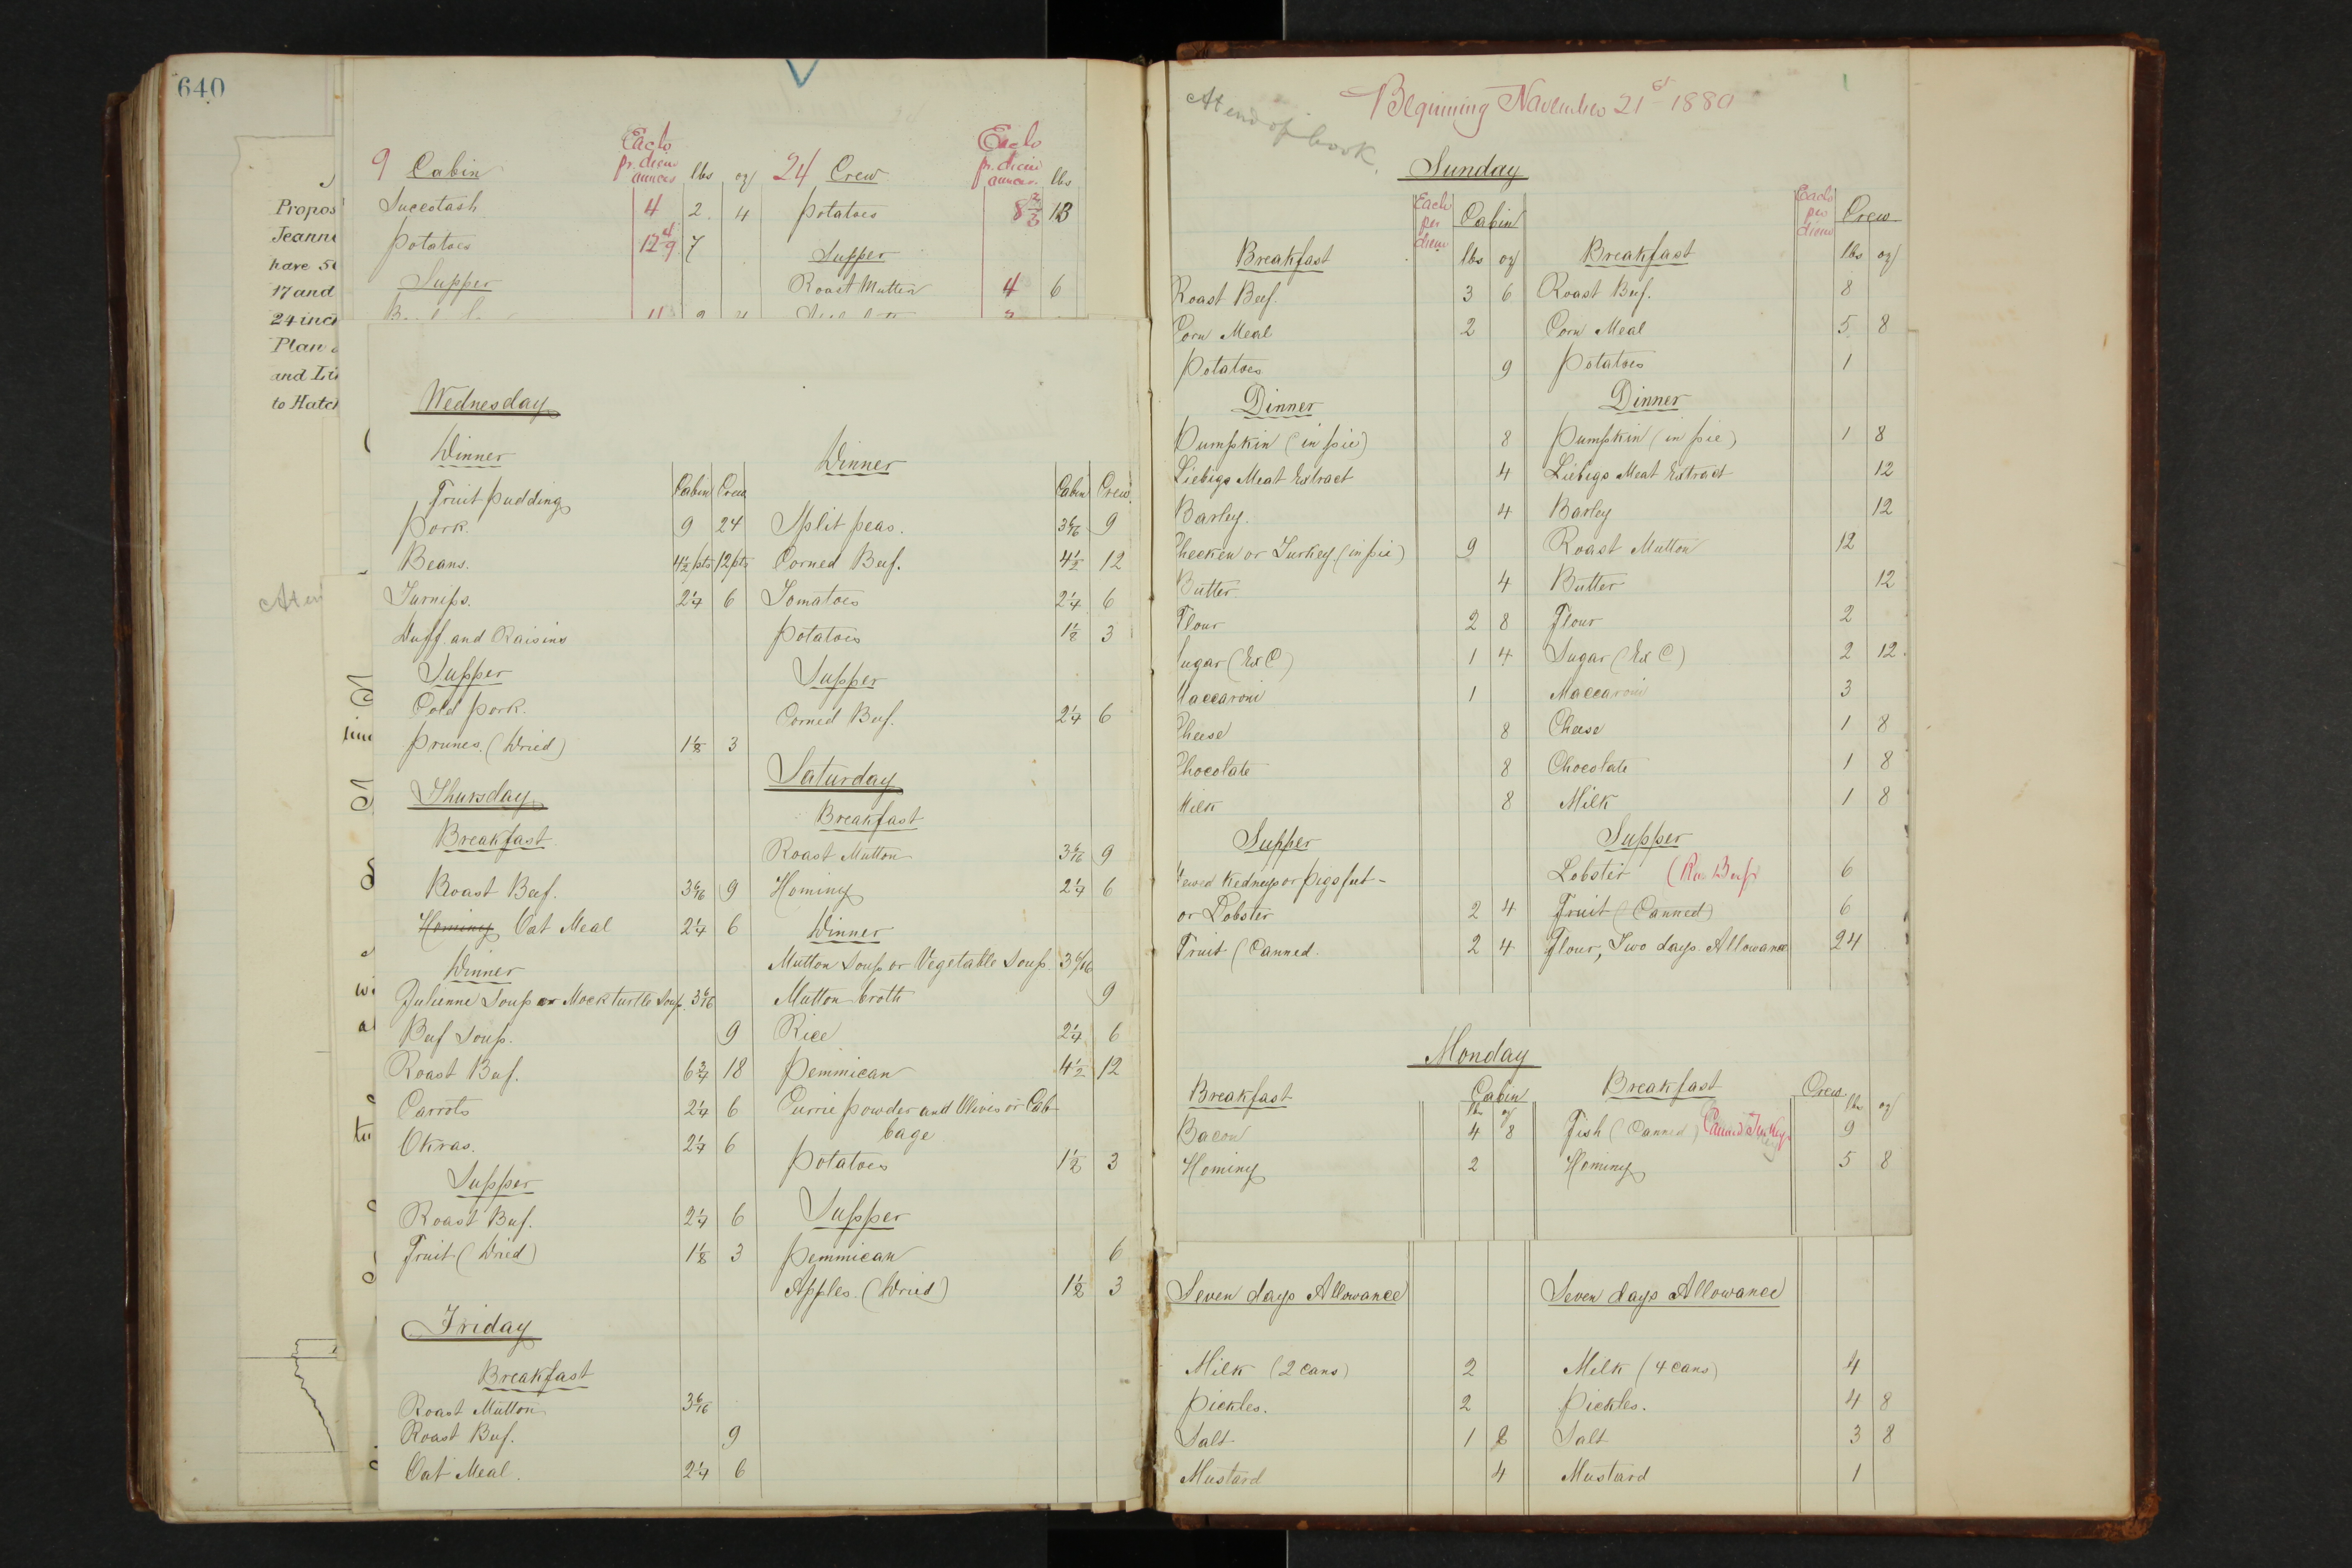 640
Propos
Jeann
have 5
17 and
24 inch
Plan
and Li
to Hatch
9 Cabin Each pr. diem ounces lbs oz 24 Crew Each pr. diem ounces lbs
Succotash 4 2 4 Potatoes 8 2/3 13
Potatoes 12 4/9 7 Supper
Supper Roast Mutton 4 6
Wednesday
Dinner Dinner
Fruit pudding Cabin Crew Cabin Crew
Pork. 9 24 Split peas. 3 6/16 9
Beans. 4 1/2 pts 12 pts Corned Beef. 4 1/2 12
Turnips. 2 1/4 6 Tomatoes 2 1/4 6
Duff and Raisins Potatoes 1 1/8 3
Supper Supper
Cold Pork. Corned Beef. 2 1/4 6
Prunes. (Dried) 1 1/8 3
Saturday
Thursday
Breakfast Breakfast
Roast Mutton 3 6/16 9
Roast Beef. 3 6/16 9 Hominy 2 1/4 6
Hominy Oat Meal 2 1/4 6 Dinner
Dinner Mutton Soup or Vegetable Soup 3 6/16
Julienne Soup or Mock turtle Soup 3 6/16 Mutton broth 9
Beef Soup. 9 Rice 2 1/4 6
Roast Beef. 6 3/4 18 Pemmican 4 1/2 12
Carrots 2 1/4 6 Currie powder and Olives or Cab-
bage
Okras. 2 1/4 6 Potatoes 1 1/2 3
Supper
Roast Beef. 2 1/4 6 Supper
Fruit (Dried) 1 1/8 3 Pemmican 6
Apples. (Dried) 1 1/2 3
Friday
Breakfast
Roast Mutton 3 6/16
Roast Beef. 9
Oat Meal. 2 1/4 6
At end of book.
Beginning November 21st 1880
Sunday
Each per diem Cabin Each per diem Crew
Breakfast lbs oz Breakfast lbs oz
Roast Beef. 3 6 Roast Beef. 8
Corn Meal 2 Corn Meal 5 8
Potatoes 9 Potatoes 1
Dinner Dinner
Pumpkin (in pie) 8 Pumpkin (in pie) 1 8
Liebigs Meat Extract 4 Liebigs Meat Extract 12
Barley. 4 Barley 12
Checken or Turkey (in pie) 9 Roast Mutton 12
Butter 4 Butter 12
Flour 2 8 Flour 2
Sugar (Ex C) 1 4 Sugar (Ex C) 2 12.
Maccaroni 1 Maccaroni 3
Cheese 8 Cheese 1 8
Chocolate 8 Chocolate 1 8
Milk 8 Milk 1 8
Supper Supper
Kedneys or Pigs feet - Lobster 6
or Lobster 2 4 Fruit (Canned) 6
Fruit (Canned. 2 4 Flour, Two days Allowance 24
Monday
Breakfast Cabin Breakfast Crew
lbs oz lbs oz
Bacon 4 8 Fish (Canned) Canned Turkey 9
Hominy 2 Hominy 5 8
Seven days Allowance Seven days Allowance
Milk (2 cans) 2 Milk (4 cans) 4
Pickles. 2 Pickles. 4 8
Salt 1 8 Salt 3 8
Mustard 4 Mustard 1